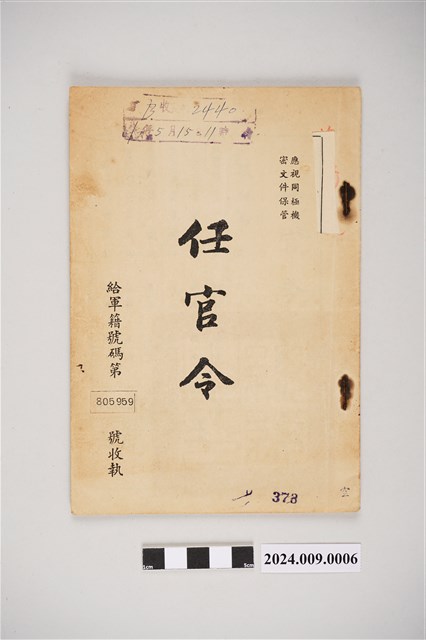 2440
5月15
應視同極機
密文件保管
任官令
給軍籍號碼第
805959
號收執
378
1cm
5cm
2024.009.0006